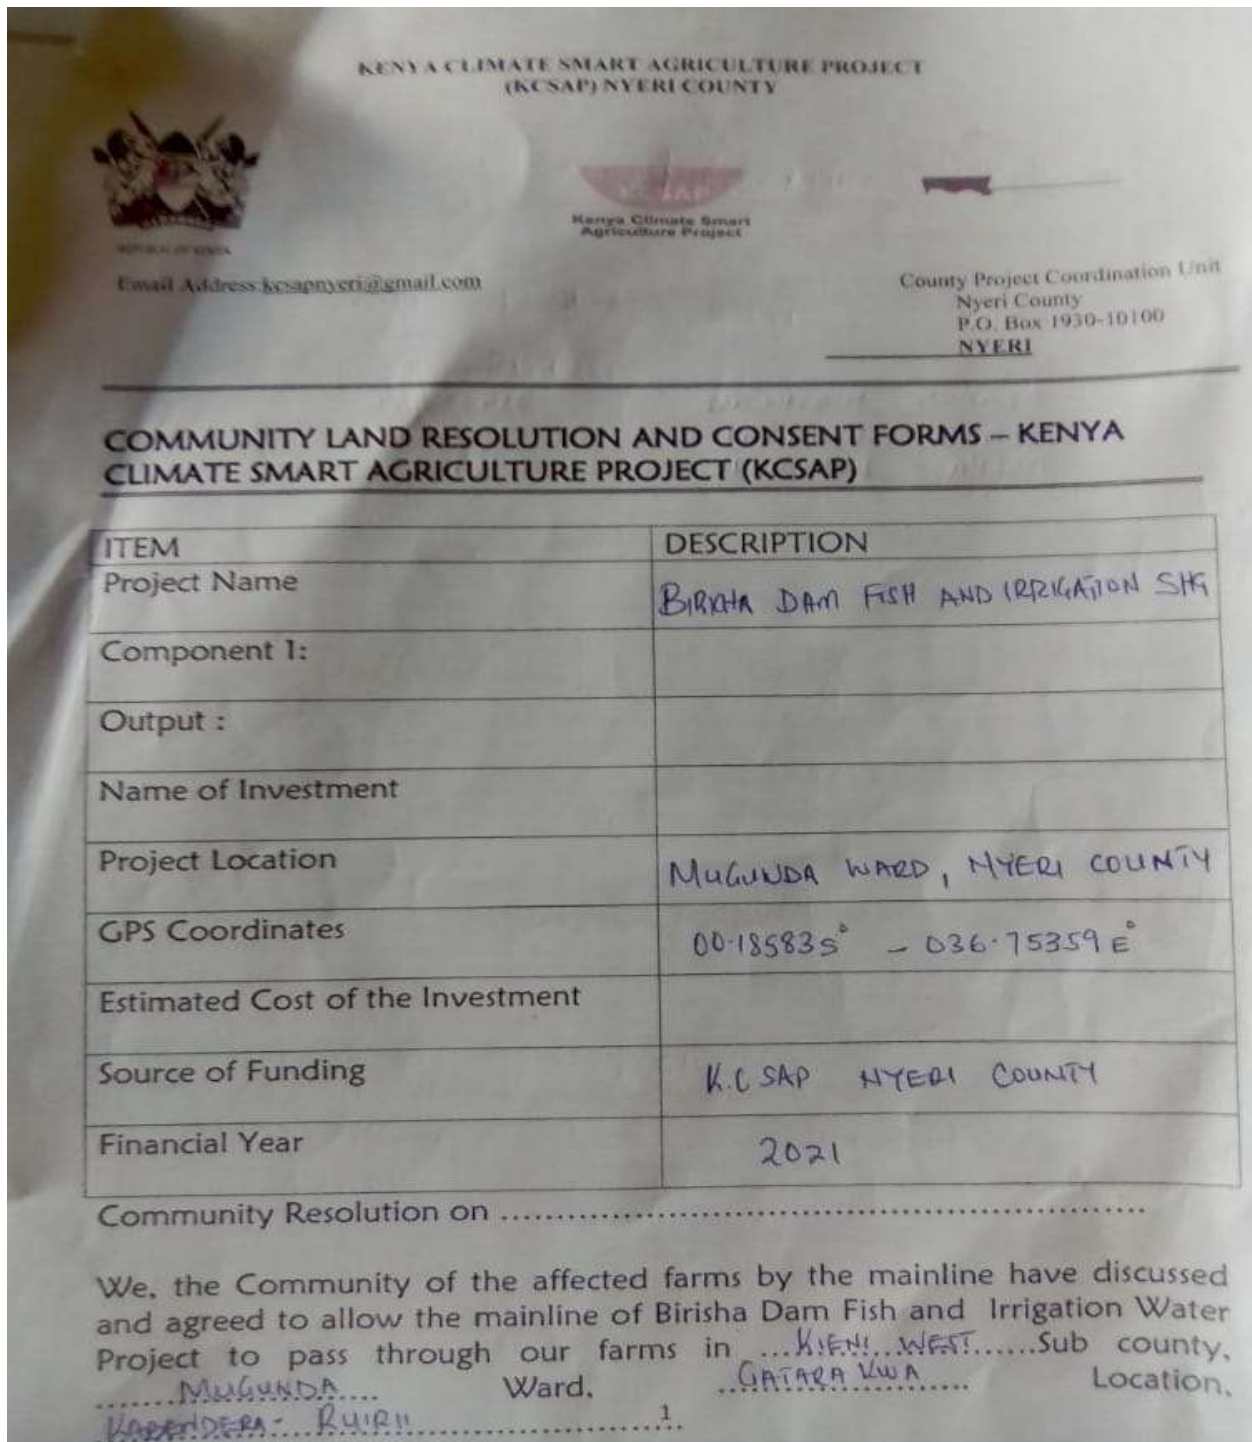 KENYA CLIMATE SMART AGRICULTURE PROJECT
(KCSAP) NYERI COUNTY
REPUBLIC OF KENYA
Kenya Climate Smart
Agriculture Project
Email Address:kcsapnyeri@gmail.com
County Project Coordination Unit
Nyeri County
P.O. Box 1930-10100
NYERI
COMMUNITY LAND RESOLUTION AND CONSENT FORMS – KENYA
CLIMATE SMART AGRICULTURE PROJECT (KCSAP)
ITEM DESCRIPTION
Project Name DAM FISH AND IRRIGATION SHG
Component 1:
Output :
Name of Investment
Project Location MUGUNDA WARD, NYERI COUNTY
GPS Coordinates 00.18583S° - 036.75359E°
Estimated Cost of the Investment
Source of Funding K.C SAP NYERI COUNTY
Financial Year 2021
Community Resolution on ..............................................................
We, the Community of the affected farms by the mainline have discussed
and agreed to allow the mainline of Birisha Dam Fish and Irrigation Water
Project to pass through our farms in ...KIENI...WEST......Sub county,
.......MUGUNDA.... Ward, ..GATARAKWA.... Location,
RUIRII
1